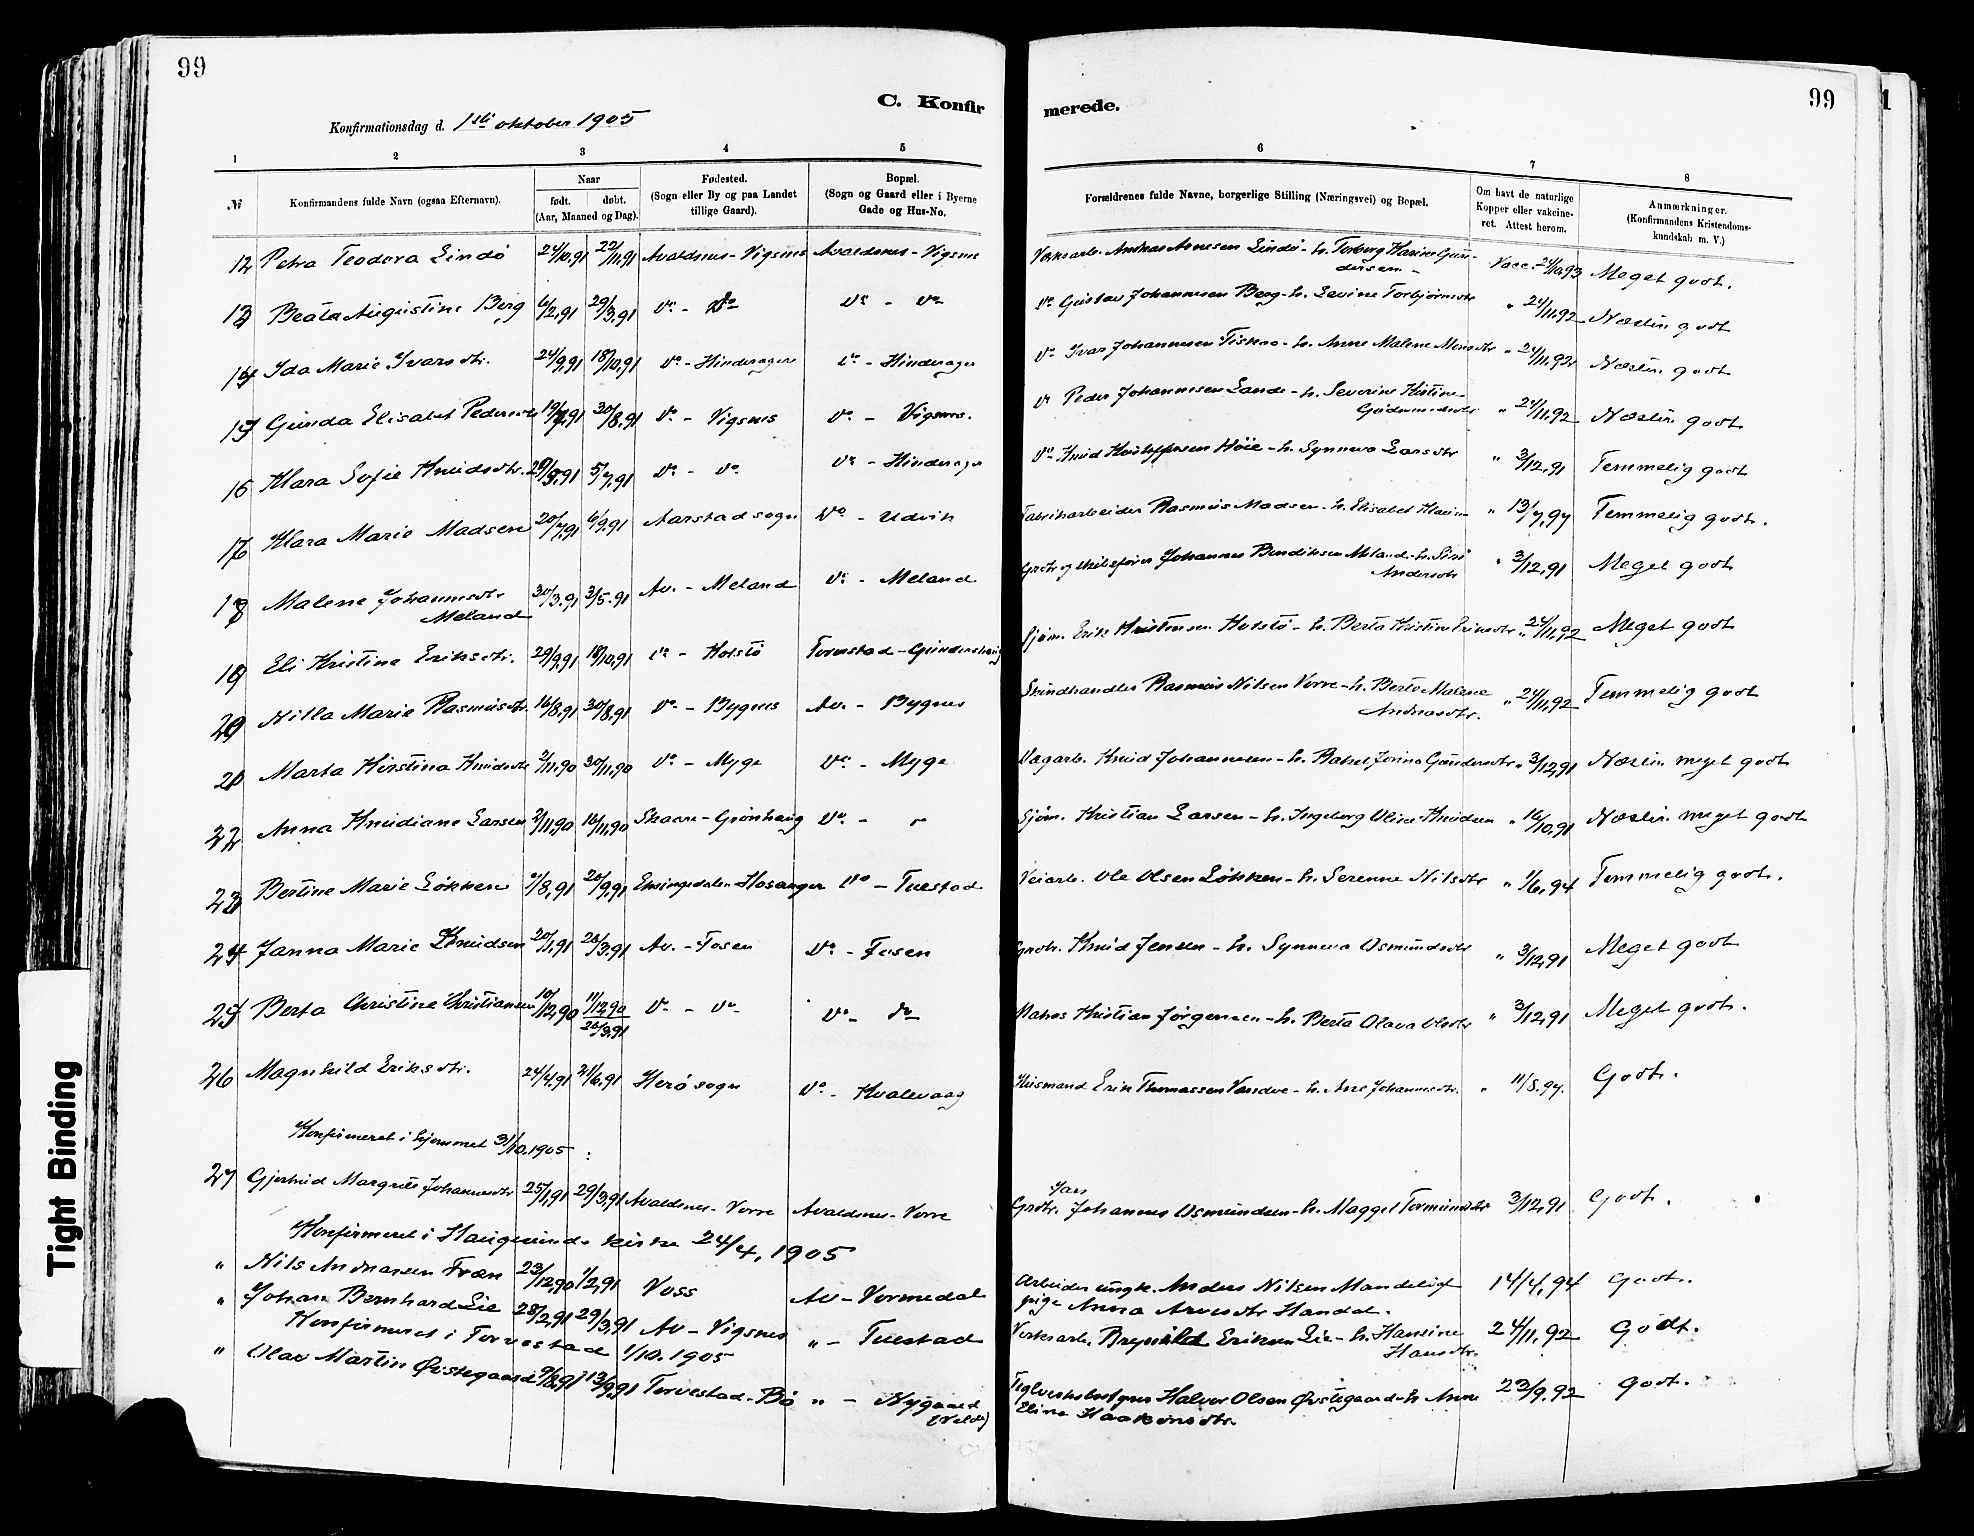 99
C. Konfir
merede.
99
1
Konfirmationsdag d. 1ste oktober 1905
1 2 3 4 5 6 7 8
№
Konfirmandens fulde Navn (ogsaa Efternavn).
Naar
født. døbt.
(Aar, Maaned og Dag).
Fødested.
(Sogn eller By og paa Landet
tillige Gaard).
Bopæl.
(Sogn og Gaard eller i Byerne
Gade og Hus-No.
Forældrenes fulde Navne, borgerlige Stilling (Næringsvei) og Bopæl.
Om havt de naturlige
Kopper eller vakcine-
ret. Attest herom.
Anmærkninger.
(Konfirmandens Kristendoms-
kundskab m. V.)
12 Petra Teodora Lindø 24/10.91 22/11.91 Avaldsnes - Vigsnes Avaldsnes - Vigsnes Andreas Arnesen Lindø - h. Torborg Karine Gun-
dersen - Vacc. 24/10.93 Meget godt.
13 Beata Augustine Berg 6/2.91 29/3.91 do - do do - do do Gustav Johannesen Berg - h. Levine Torbjørnsdtr " 24/11.92 Næsten godt
14 Ida Marie Ivarsdtr. 24/9.91 18/10.91 do - Hinderager do - Hinderager do Ivar Johannesen - h. Anne Malene Monsdtr " 24/11.92 Næsten godt
15 Gunda Elisabet Pedersdtr 30/8.91 do - Vigsnes do - Vigsnes. do Peder Johannesen Sande - h. Severine Kristine
Gudmundsdtr " 24/11.92 Næsten godt
16 Klara Sofie Knudsdtr. 5/7.91 do - do do - Hinderager do Knud Kristoffersen Høie - h. Synneva Larsdtr " 3/12.91 Temmelig godt
17 Klara Marie Madsen 20/7.91 6/9.91 Aarstad sogn do - Udvik Fabrikarbeider Rasmus Madsen - h. Elisabet " 13/7.97 Temmelig godt.
18 Malene Johannesdtr
Meland 30/3.91 3/5.91 Av. - Meland do - Meland Johannes Bendiksen Meland - h. Siri
Andersdtr " 3/12.91 Meget godt
19 Eli Kristine Eriksdtr. 29/9.91 18/10.91 do - Kolstø Torvestad - Gunnershaug Sjøm. Erik Kristensen Kolstø - h. Berta Kristine Eriksdtr " 24/11.92 Meget godt
20 Nilla Marie Rasmusdtr. 16/8.91 30/8.91 do - Bygnes Av. - Bygnes Skindhandler Rasmus Nilsen Vorre - h. Berta Malene
Andreasdtr. " 24/11.92 Temmelig godt
21 Marta Kirstina Knudsdtr 2/11.90 30/11.90 do - Myge do - Myge Knud Johannesen - h. Rakel Jorine Gundersdtr " 3/12.91 Næsten meget godt
22 Anna Knudiane Larsen 2/11.90 16/11.90 Skaare - Grønhaug do - Sjøm. Kristian Larsen - h. Ingeborg Oline Knudsen " 16/10.91 Næsten meget godt
23 Bertine Marie Løkken 1/8.91 20/9.91 Eksingedalen Hosanger do - Tuestad Veiarb. Ole Olsen Løkken - h. Serenne Nilsdtr " 1/6.94 Temmelig godt.
24 Janna Marie Knudsen 20/1.91 26/3.91 Av. - Fosen do - Fosen Grdbr. Knud Jensen - h. Synneva Osmundsdtr " 3/12.91 Meget godt
25 Berta Christine Christiansen 10/12.90 11/12.90
26/3.91 do - do do - do Kristian Jørgensen - h. Berta Olava Olsdtr " 3/12.91 Meget godt.
26 Magnhild Eriksdtr. 24/4.91 21/6.91 Herø sogn do - Kvalevaag Husmand Erik Thomassen - h. Ane Johannesdtr. " 11/5.97. Godt.
Konfirmeret i hjemmet 31/10.1905:
27 Gjertrud Margrete Johannesdtr 25/1.91 29/3.91 Avaldsnes - Vorre Avaldsnes - Vorre Grdbr. Johannes Osmundsen - h. Maggel Tormundsdtr 3/12.91 Godt.
Konfirmeret i Haugesunds kirke 24/4, 1905
" Nils Andreasen 23/12.90 1/2.91 Voss Av - Vormedal Arbeider ungk. Anders Nilsen
pige Anna 14/4.94 Godt.
" Johan Bernhard Lie 28/2.91 29/3.91 Av - Vigsnes " - Tuestad Verksarb. Brynild Eriksen Lie - h. Hansine
Hansdtr. 24/11.92 Godt.
Konfirmeret i Torvestad 1/10.1905
" Olav Martin Østegaard 9/8.91 13/9.91 Torvestad - Bø " - Nygaard
Teglverksbestyrer Halvor Olsen Østegaard - h. Anne
Eline Haakonsdtr. 23/9.92 Godt.
Tight Binding